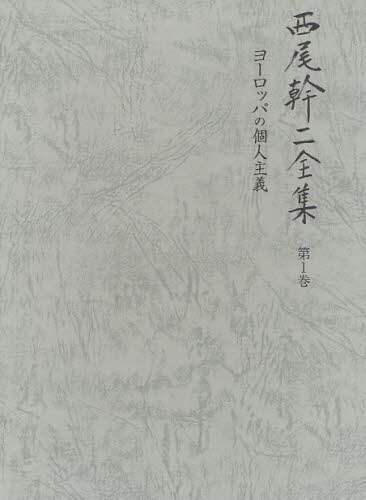 西尾幹二全集
第1巻
ヨーロッパの個人主義